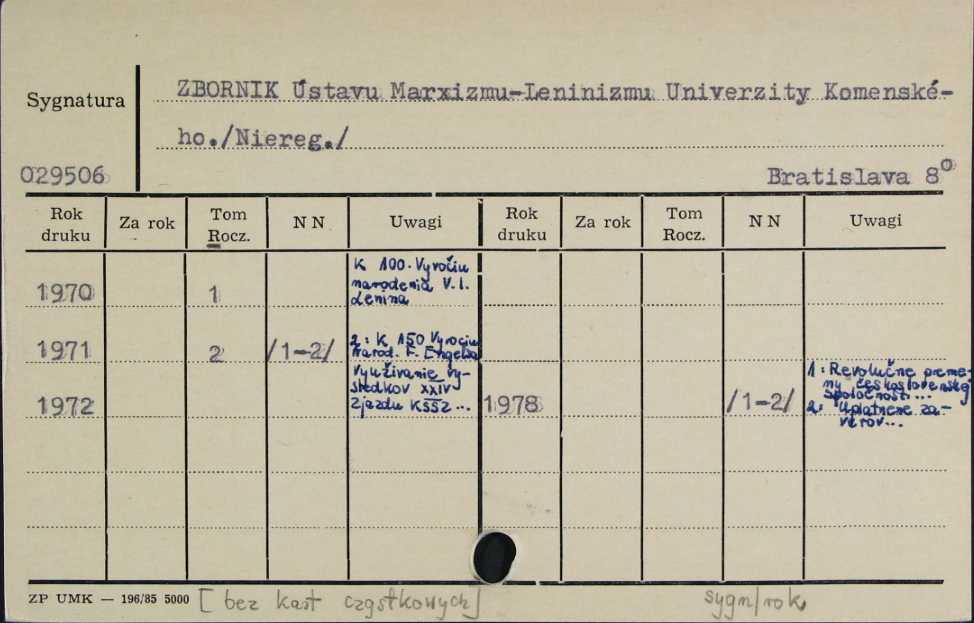 Sygnatura
ZBORNIK Ústavu Marxizmu-Leninizmu Univerzity Komenské-
ho./Niereg./
029506
Bratislava 8°
Rok druku | Za rok | Tom Rocz. | N N | Uwagi | Rok druku | Za rok | Tom Rocz. | N N | Uwagi
1970 1
K 100. Vyročiu
narodenia V. I.
Lenina
1971 2 /1-2/
2: K 150 Vyrociu
Narod. F. Engelsa
1972
Využivanie vy-
sledkov XXIV
Zjazdu KSSZ...
1978 /1-2/
1: Revolučne preme-
ny československej
spoločnosti...
2: Uplatnene za-
verov...
ZP UMK — 196/85 5000
[bez kart cząstkowych]
sygn/rok